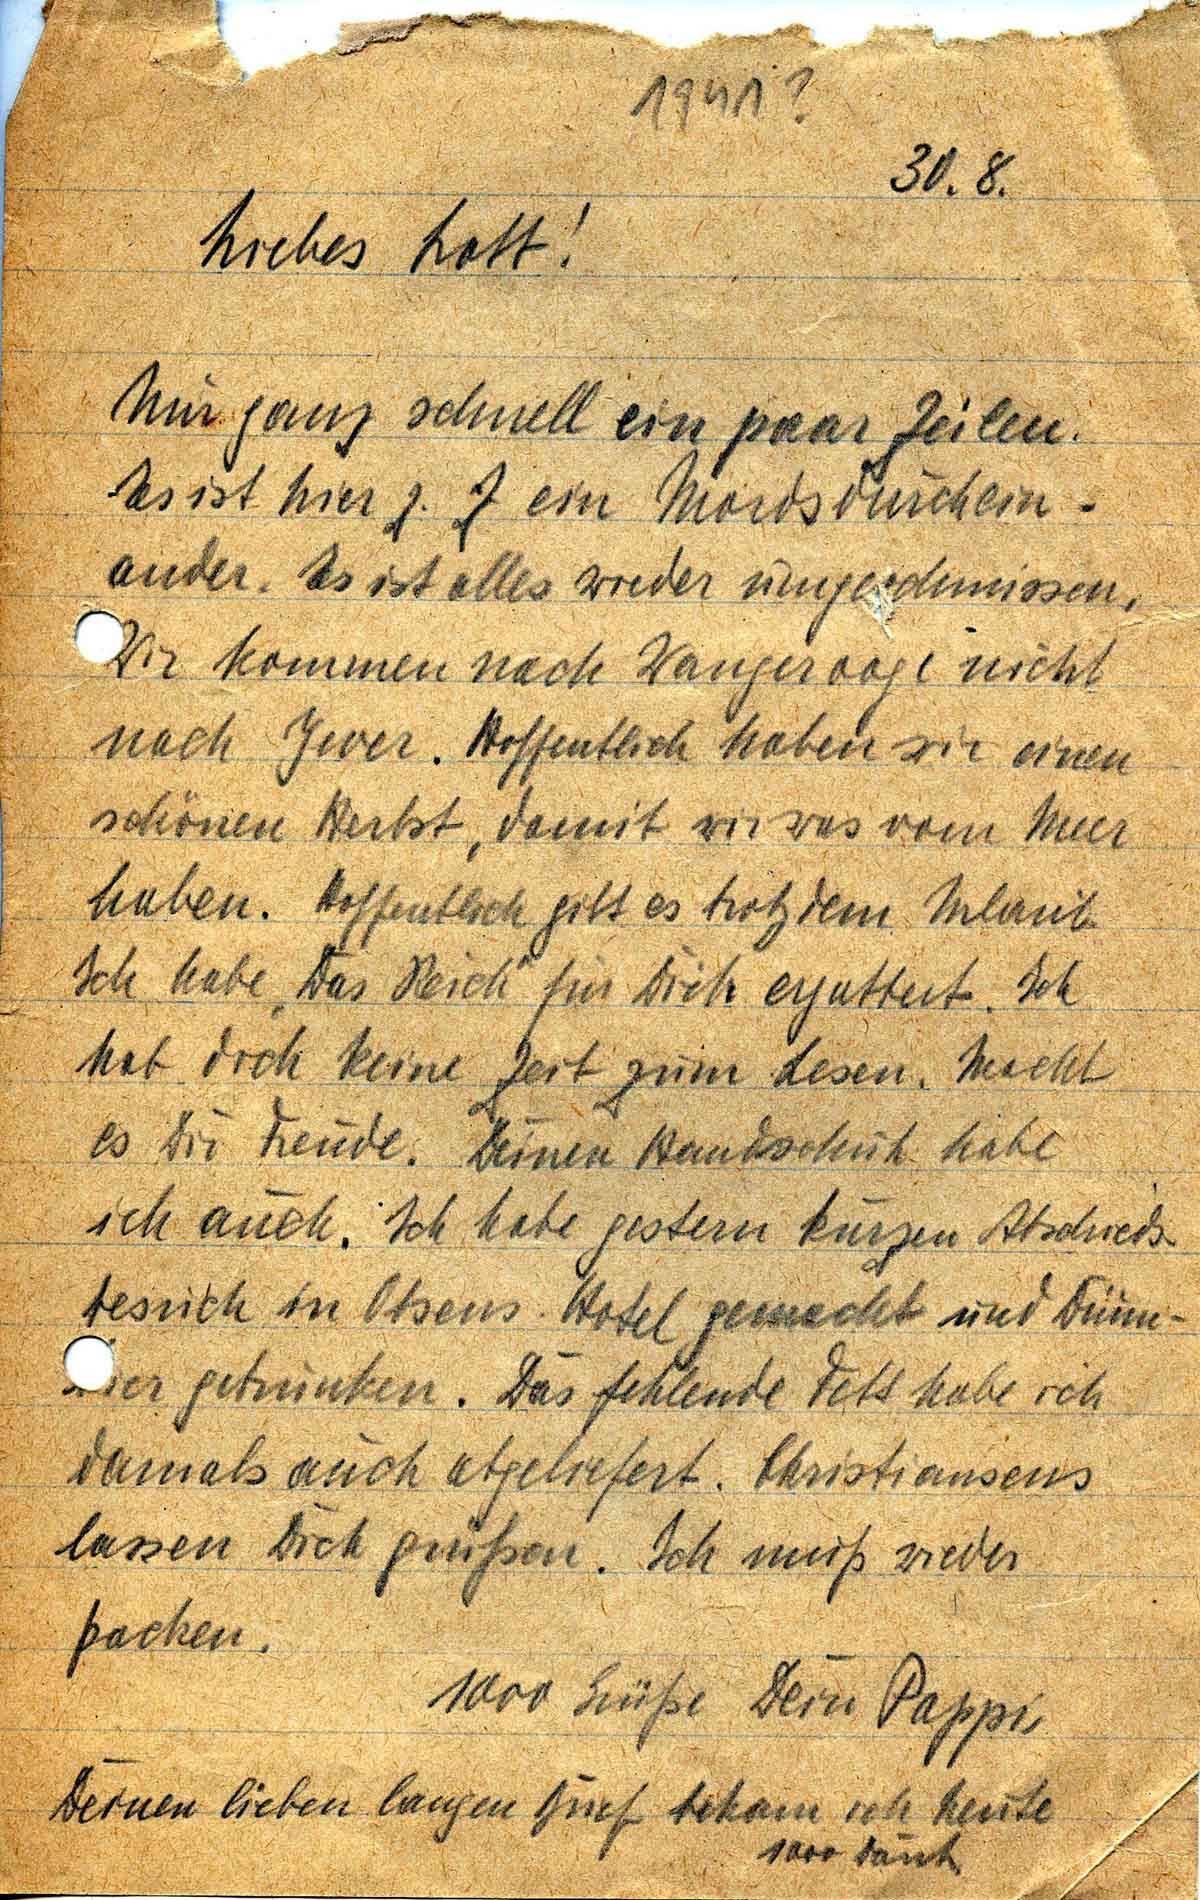 1941?
30. 8.
Liebes Lott!
Nur ganz schnell ein paar Zeilen.
Es ist hier z. Z ein Mordsdurchein-
ander. Es ist alles wieder umgeschmissen.
Wir kommen nach Wangerooge nicht
nach Jever. Hoffentlich haben wir einen
schönen Herbst, damit wir was vom Meer
haben. Hoffentlich gibt es trotzdem Urlaub.
Ich habe „Das Reich" für Dich ergattert. Ich
hab doch keine Zeit zum Lesen. Macht
es Dir Freude. Deinen Handschuh habe
ich auch. Ich habe gestern kurzen Abschieds-
besuch in Obsens Hotel gemacht und Dünn-
bier getrunken. Das fehlende Fett habe ich
damals auch abgeliefert. Christiansens
lassen Dich grüßen. Ich muß wieder
packen.
1000 Grüße Dein Pappi
Deinen lieben langen Brief bekam ich heute
1000 Dank